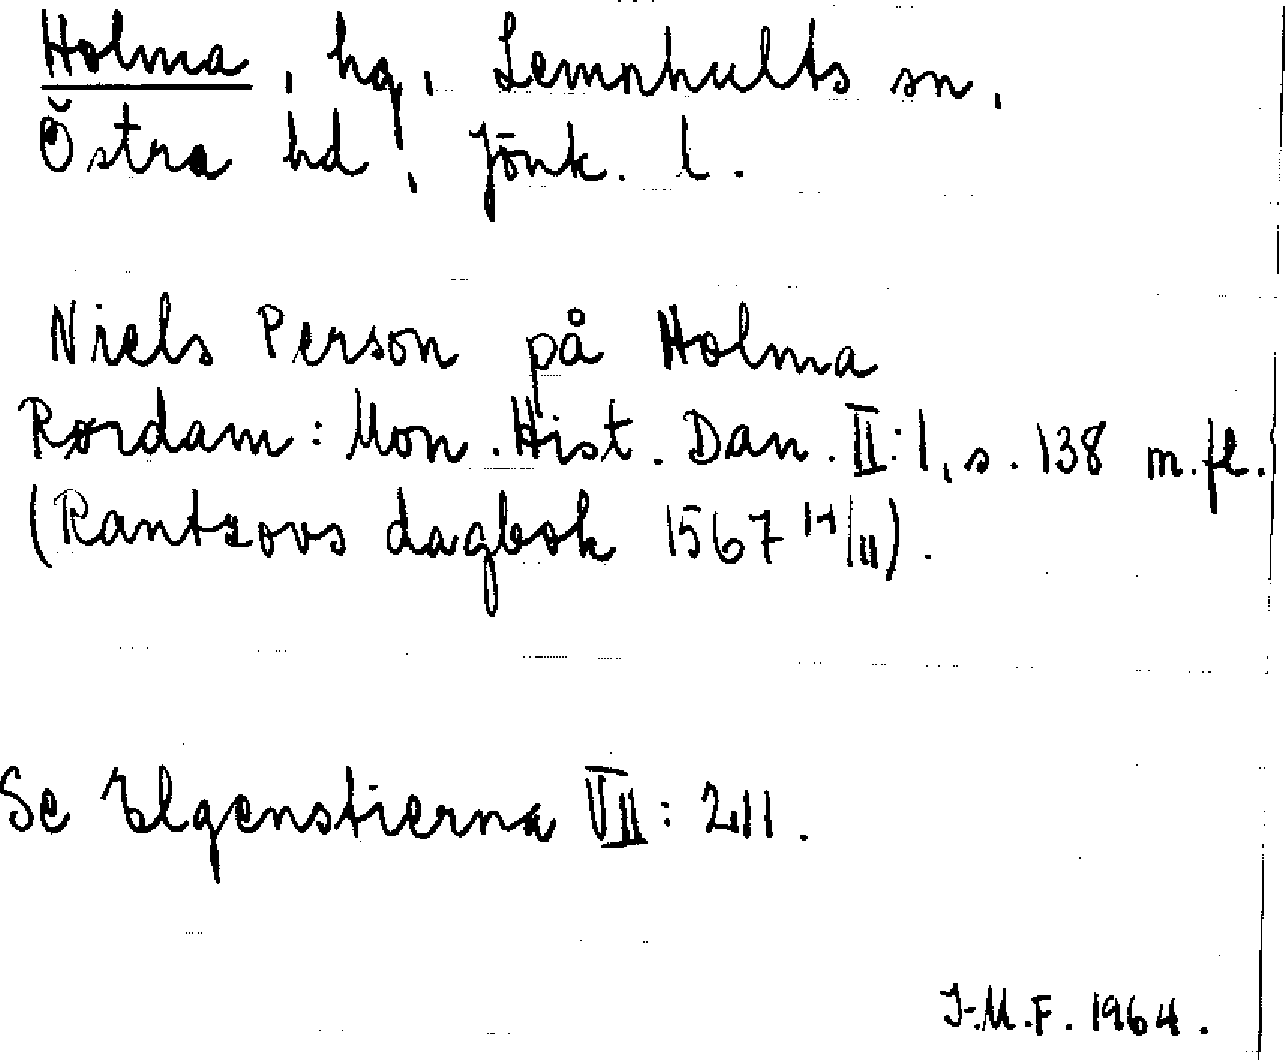 Holma, hg, Lemnhults sn,
Östra hd, Jönk. l.
Niels Person på Holma
Rørdam: Mon. Hist. Dan. II:1, s. 138 m.fl.
(Rantzovs dagbok 1567 14/11).
Se Elgenstierna VII: 211.
I-M.F. 1964.